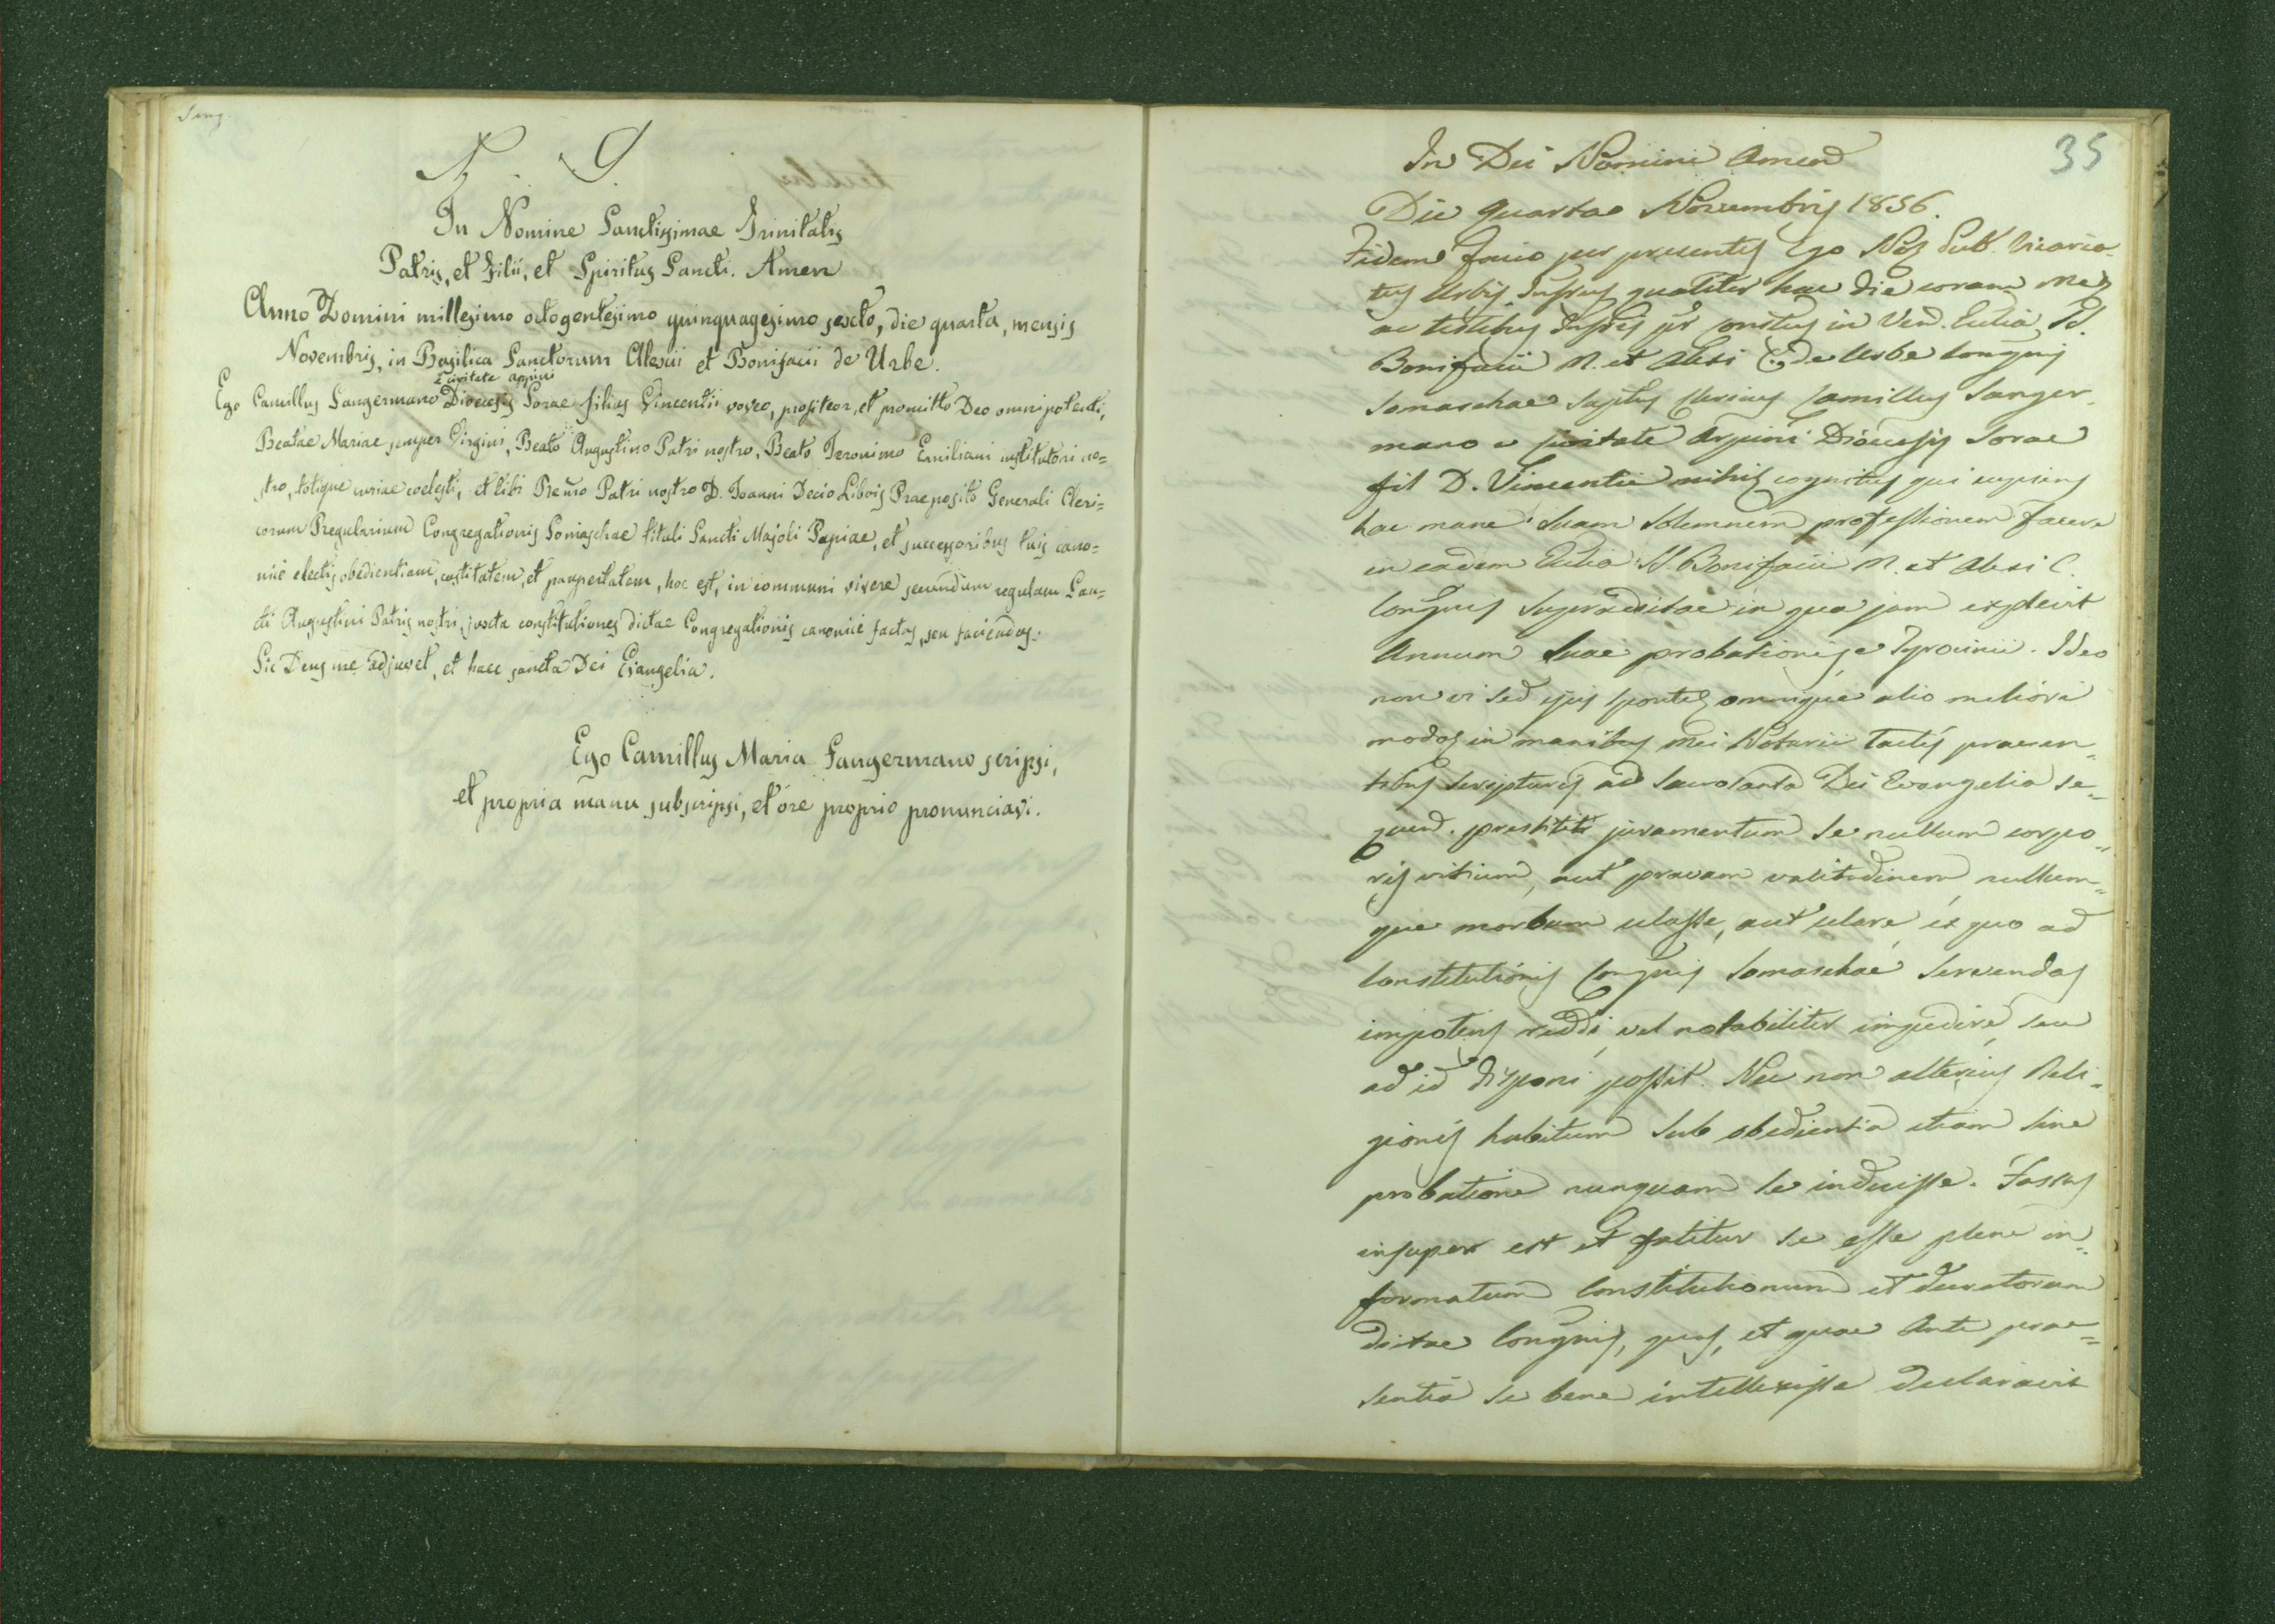 N. S.
In Nomine Sanctissimae Trinitatis
Patris, et Filii, et Spiritus Sancti. Amen
Anno Domini millesimo octogentesimo quinquagesimo sexto, die quarta, mensis
Novembris, in Basilica Sanctorum Alexii et Bonifacii de Urbe.
e civitate Arpini
Ego Camillus Sangermano Diocesis Sorae filius Vincentii voveo, profiteor, et promitto Deo omnipotenti,
Beatae Mariae semper Virgini, Beato Augustino Patri nostro, Beato Ieronimo Emiliani institutori no=
stro, totique curiae coelesti, et tibi Rev̄mo Patri nostro D. Joanni Decio Libois Praeposito Generali Cleri=
corum Regularium Congregationis Somaschae tituli Sancti Majoli Papiae, et successoribus tuis cano=
nice electis obedientiam, castitatem, et paupertatem, hoc est, in communi vivere secundum regulam San=
cti Augustini Patris nostri, juxta constitutiones dictae Congregationis canonice factas, seu faciendas.
Sic Deus me adjuvet, et haec sancta Dei Evangelia.
Ego Camillus Maria Sangermano scripsi,
et propria manu subscripsi, et ore proprio pronunciavi.
35
In Dei Nomine Amen
Die quarta Novembris 1856.
Fidem facio per presentes Ego Nos Pub. Vicaria-
tus Urbis Infrus qualiter hac die coram me
ac testibus Infris pr constus in Ven. Ecclia SS.
Bonifacii M. et Alexi C. de Urbe Congnis
Somaschae supttus Clericus Camillus Sanger-
mano e civitate Arpini Diocesis Sorae
fil D. Vincentii mihi cognitus qui cupiens
hac mane suam solemnem professionem facere
in eadem Ecclia SS. Bonifacii M. et Alexi C.
Congnis supradictae in qua jam explevit
Annum suae probationis e Tyrocinii. Ideo
non vi sed ejus sponte omnique alio meliori
modo in manibus mei Notarii tactis praesen-
tibus scripturis ad sacrosanta Dei Evangelia se-
quend. prestitit juramentum se nullum corpo=
ris vitium, aut pravam valitudinem nullum=
que morbum celasse, aut celare ex quo ad
Constitutionis Congnis Somaschae servendas
impotens reddi, vel notabiliter impedire, seu
ad id disponi possit. Nec non alterius Reli=
gionis habitum sub obedientia etiam sine
probatione nunquam se induisse. Fassus
insuper est et fatetur se esse plene in=
formatum Constitutionum et decretorum
dictae Congnis, quas, et quae Ante prae=
sentia se bene intellexisse declaravit